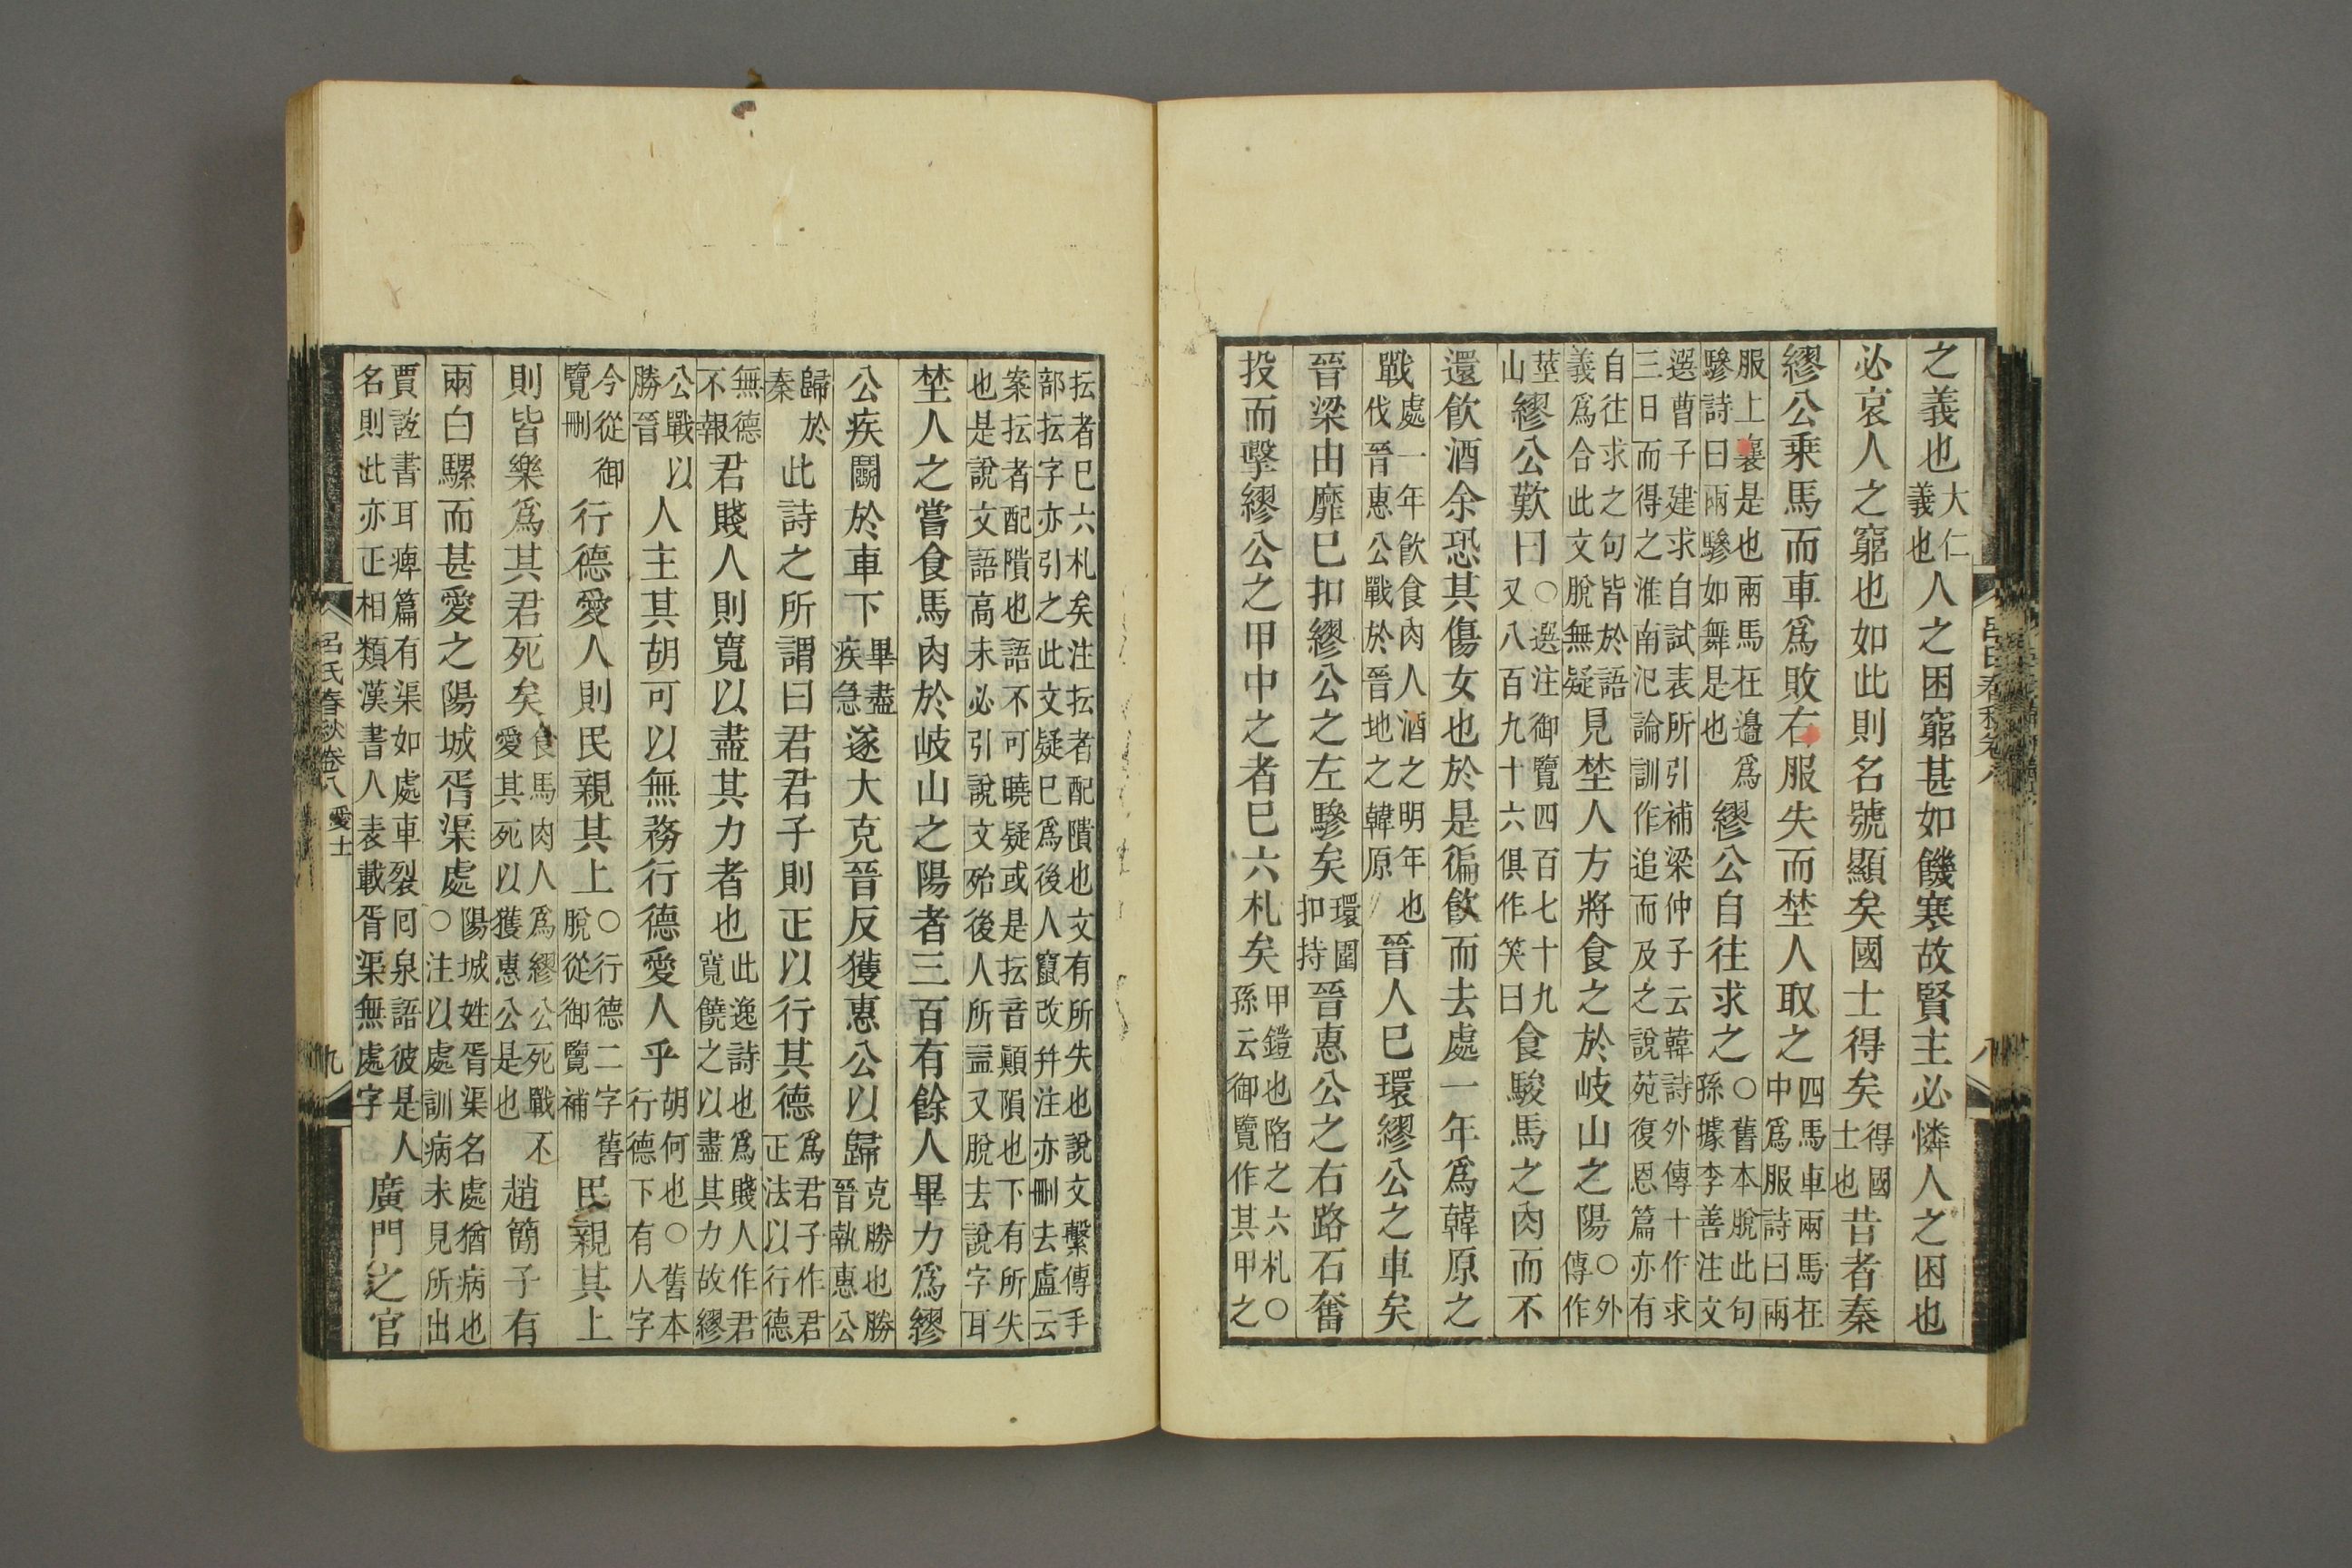 之義也大仁義也人之困窮甚如饑寒故賢主必憐人之困也
必哀人之窮也如此則名號顯矣國士得矣得國士也昔者秦
繆公乗馬而車爲敗右服失而埜人取之四馬車兩馬在中爲服詩曰兩
服上襄是也兩馬在邊爲驂詩曰兩驂如舞是也繆公自往求之○舊本脫此句孫據李善注文
選曹子建求自試表所引補梁仲子云韓詩外傳十作求三日而得之淮南氾論訓作追而及之說苑復恩篇亦有
自往求之句皆於語義爲合此文脫無疑見埜人方將食之於岐山之陽○外傳作
莖山繆公歎曰○選注御覽四百七十九又八百九十六俱作笑曰食駿馬之肉而不
還飮酒余恐其傷女也於是徧飮而去處一年爲韓原之
戰處一年飮食肉人酒之明年也伐晉惠公戰於晉地之韓原晉人已環繆公之車矣
晉梁由靡已扣繆公之左驂矣環圍扣持晉惠公之右路石奮
投而擊繆公之甲中之者已六札矣甲鎧也陷之六札○孫云御覽作其甲之
呂氏春秋卷八
八
抎者已六札矣注抎者配隤也文有所失也說文繫傳手部抎字亦引之此文疑已爲後人竄改幷注亦刪去盧云
案抎者配隤也語不可曉疑或是抎音顚隕也下有所失也是說文語高未必引說文殆後人所盖又脫去說字耳
埜人之嘗食馬肉於岐山之陽者三百有餘人畢力爲繆
公疾鬭於車下畢盡疾急遂大克晉反獲惠公以歸克勝也勝晉執惠公
歸於秦此詩之所謂曰君君子則正以行其德爲君子作君正法以行德
無德不報君賤人則寬以盡其力者也此逸詩也爲賤人作君寬饒之以盡其力故繆
公戰以勝晉人主其胡可以無務行德愛人乎胡何也○舊本行德下有人字
今從御覽刪行德愛人則民親其上○行德二字舊脫從御覽補民親其上
則皆樂爲其君死矣食馬肉人爲繆公死戰不愛其死以獲惠公是也趙簡子有
兩白騾而甚愛之陽城胥渠處陽城姓胥渠名處猶病也○注以處訓病未見所出
賈誼書耳痺篇有渠如處車裂囘泉語彼是人名則此亦正相類漢書人表載胥渠無處字廣門之官
呂氏春秋卷八 愛士
九